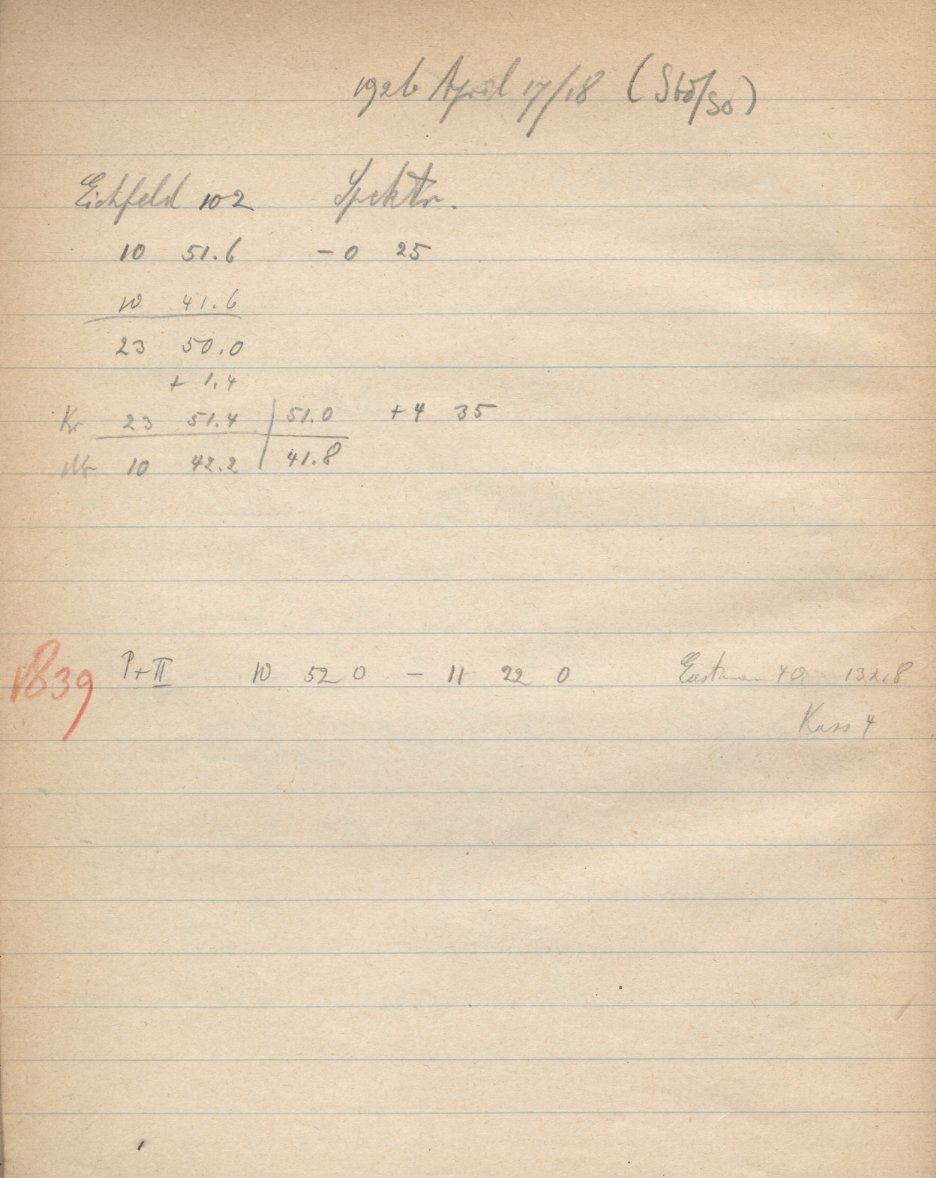 1926 April 17/18 (Sbö/So)
Eichfeld 102 Spektr.
10 51.6 - 0 25
10 41.6
23 50.0
+ 1.4
Kr 23 51.4 | 51.0 + 4 35
10 42.2 | 41.8
1839 P+II 10 52 0 - 11 22 0 Eastman 40 132,8
Kass 4